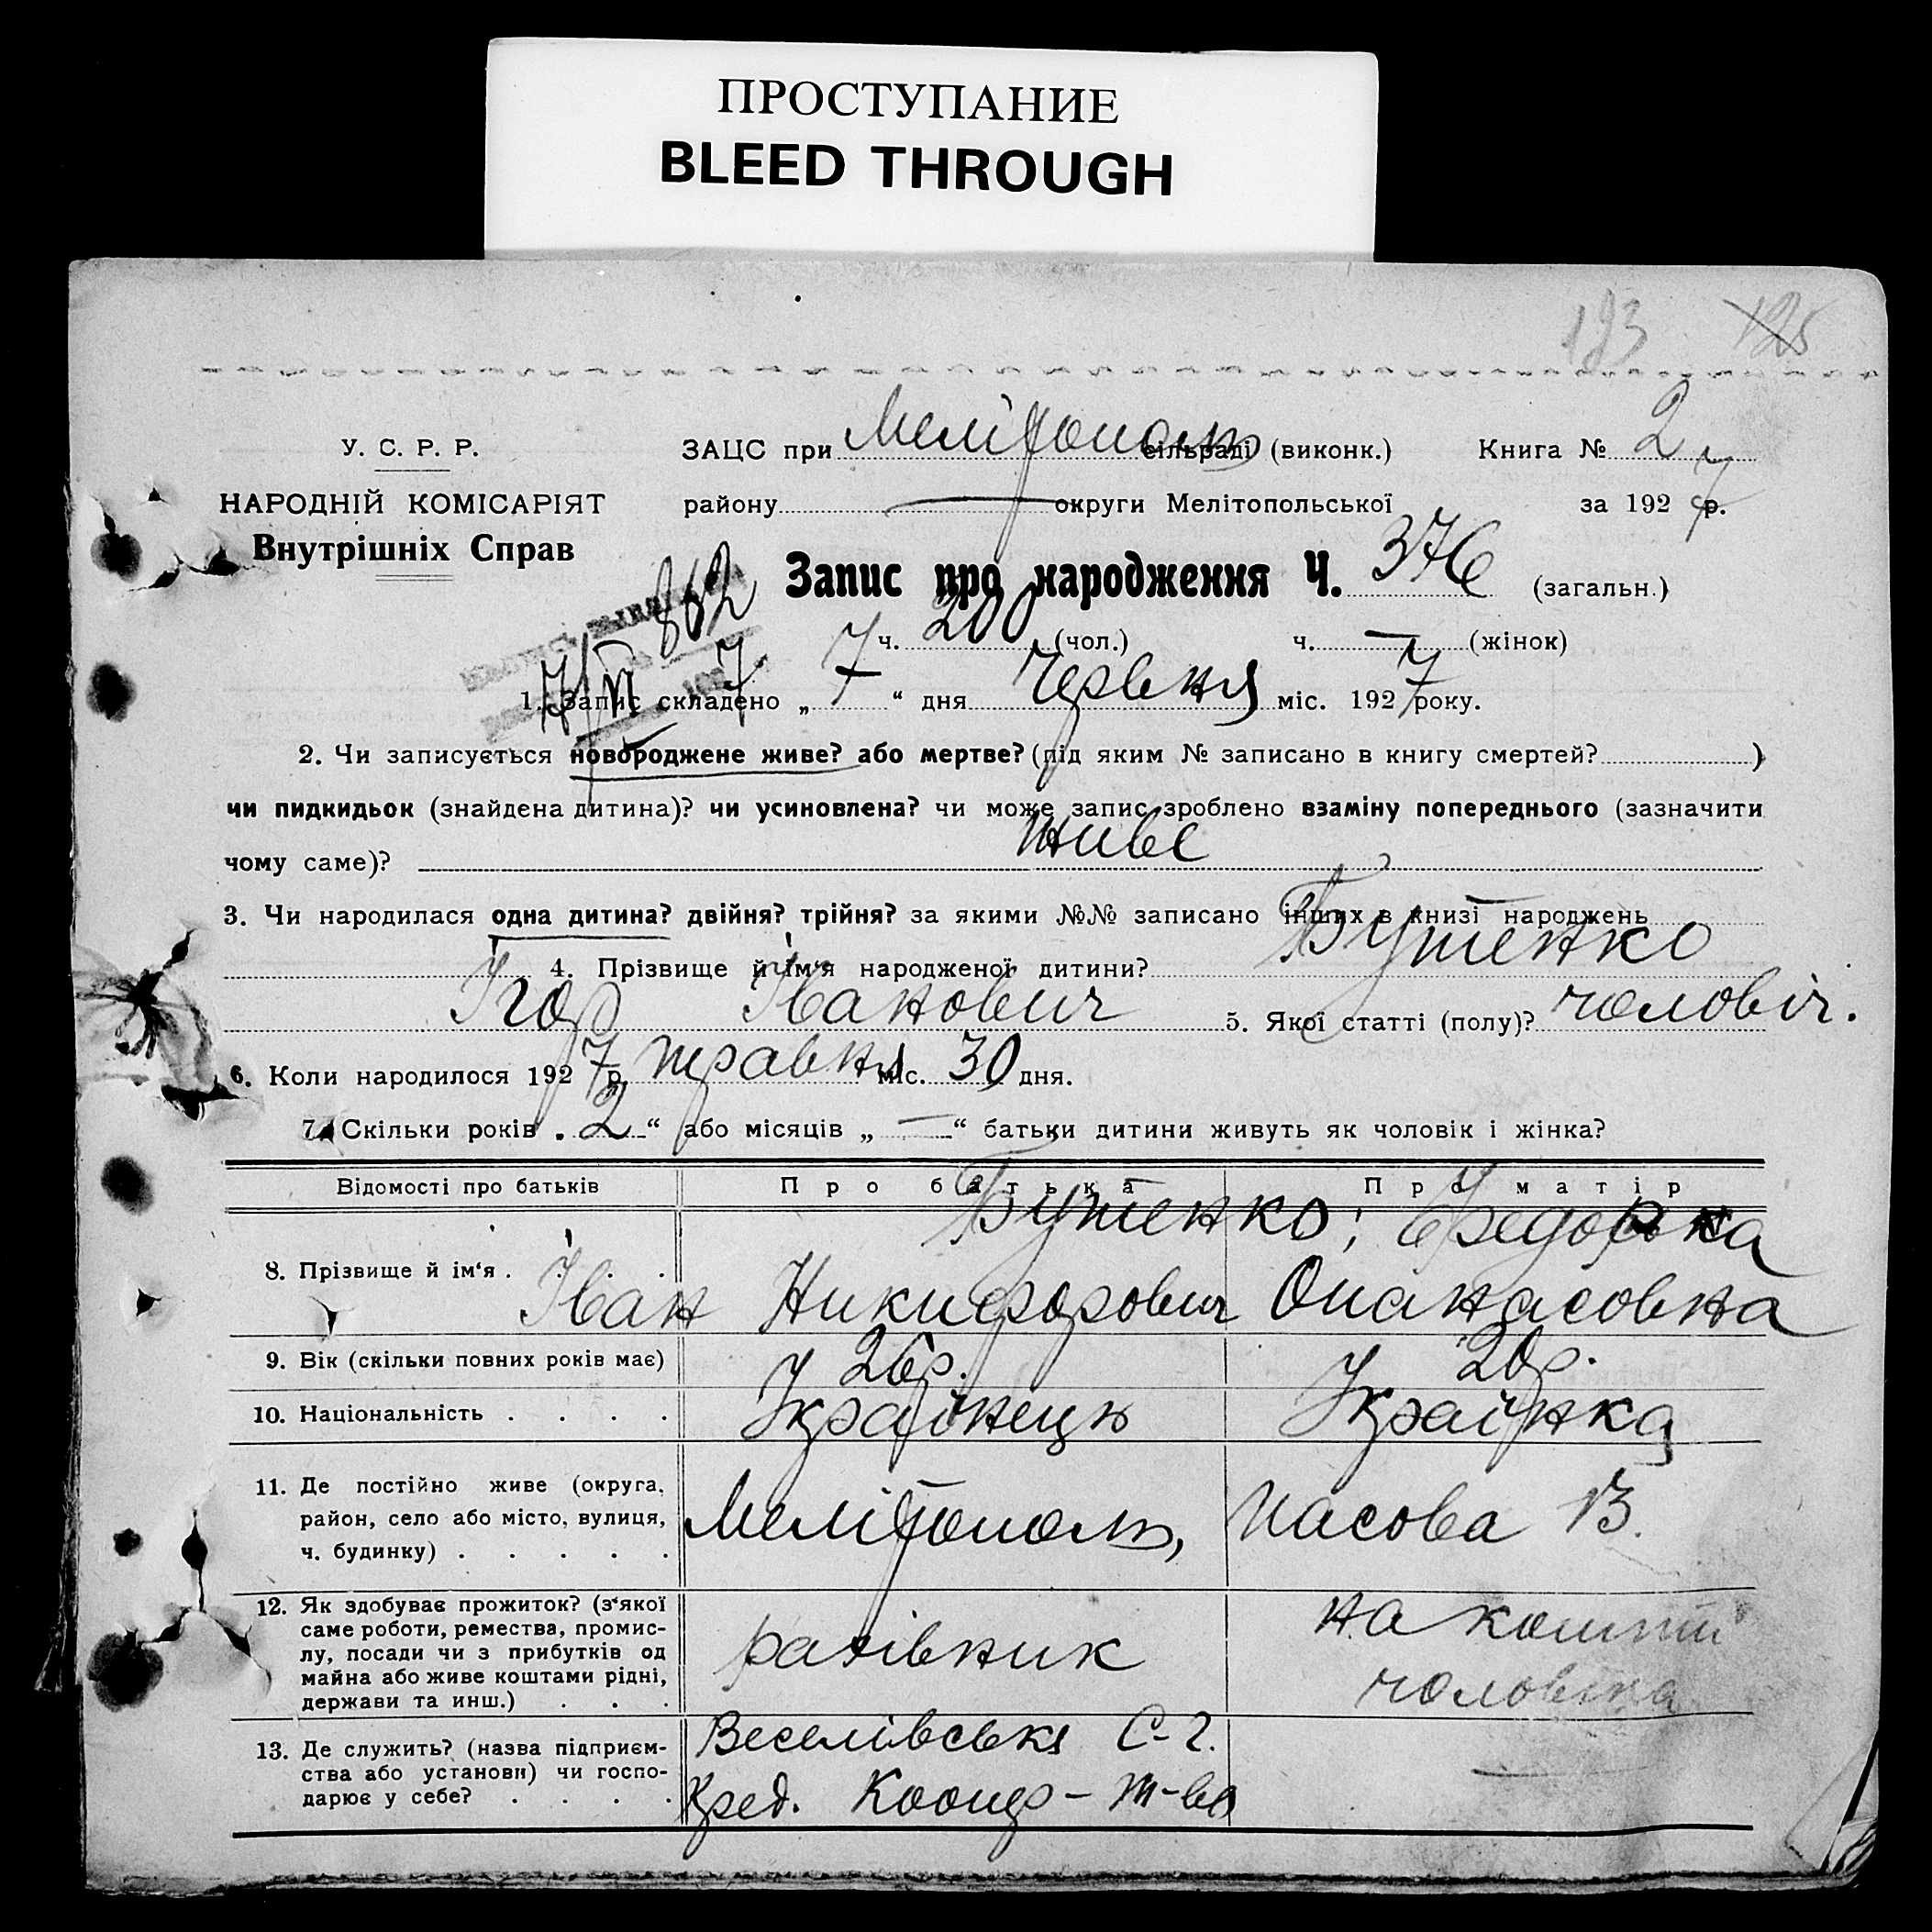 ПРОСТУПАНИЕ
BLEED THROUGH
123 125
У. С. Р. Р.
НАРОДНІЙ КОМІСАРІЯТ
Внутрішніх Справ
ЗАЦС при Мелітополь сільраді (виконк.) Книга № 2
району — округи Мелітопольської за 1927 р.
Запис про народження Ч. 376 (загальн.)
862
7/VI 7
ч. 200 (чол.) ч. — (жінок)
1. Запис складено „ 7 “ дня Червня міс. 1927 року.
2. Чи записується новороджене живе? або мертве? (під яким № записано в книгу смертей? )
чи пидкидьок (знайдена дитина)? чи усиновлена? чи може запис зроблено взаміну попереднього (зазначити
чому саме)? живе
3. Чи народилася одна дитина? двійня? трійня? за якими №№ записано інших в книзі народжень
4. Прізвище й ім‘я народженої дитини? Бутенко
Ігор Іванович 5. Якої статті (полу)? чоловіч.
6. Коли народилося 1927 р. травня міс. 30 дня.
7. Скільки років „ 2 “ або місяців „ — “ батьки дитини живуть як чоловік і жінка?
Відомості про батьків Про батька Про матір
8. Прізвище й ім‘я . . . . Бутенко; Федорка
Іван Никифорович Опанасовна
9. Вік (скільки повних років має) 26 р. 20 р.
10. Національність . . . . Українець Українка
11. Де постійно живе (округа,
район, село або місто, вулиця,
ч. будинку) . . . . . Мелітополь, Часова 13.
12. Як здобуває прожиток? (з‘якої
саме роботи, ремества, промис-
лу, посади чи з прибутків од
майна або живе коштами рідні,
держави та инш.) . . . рахівник на кошти
чоловіка
13. Де служить? (назва підприєм-
ства або установи) чи госпо-
дарює у себе? . . . . Веселівське С-г. —
Кред. Коопер-т-во